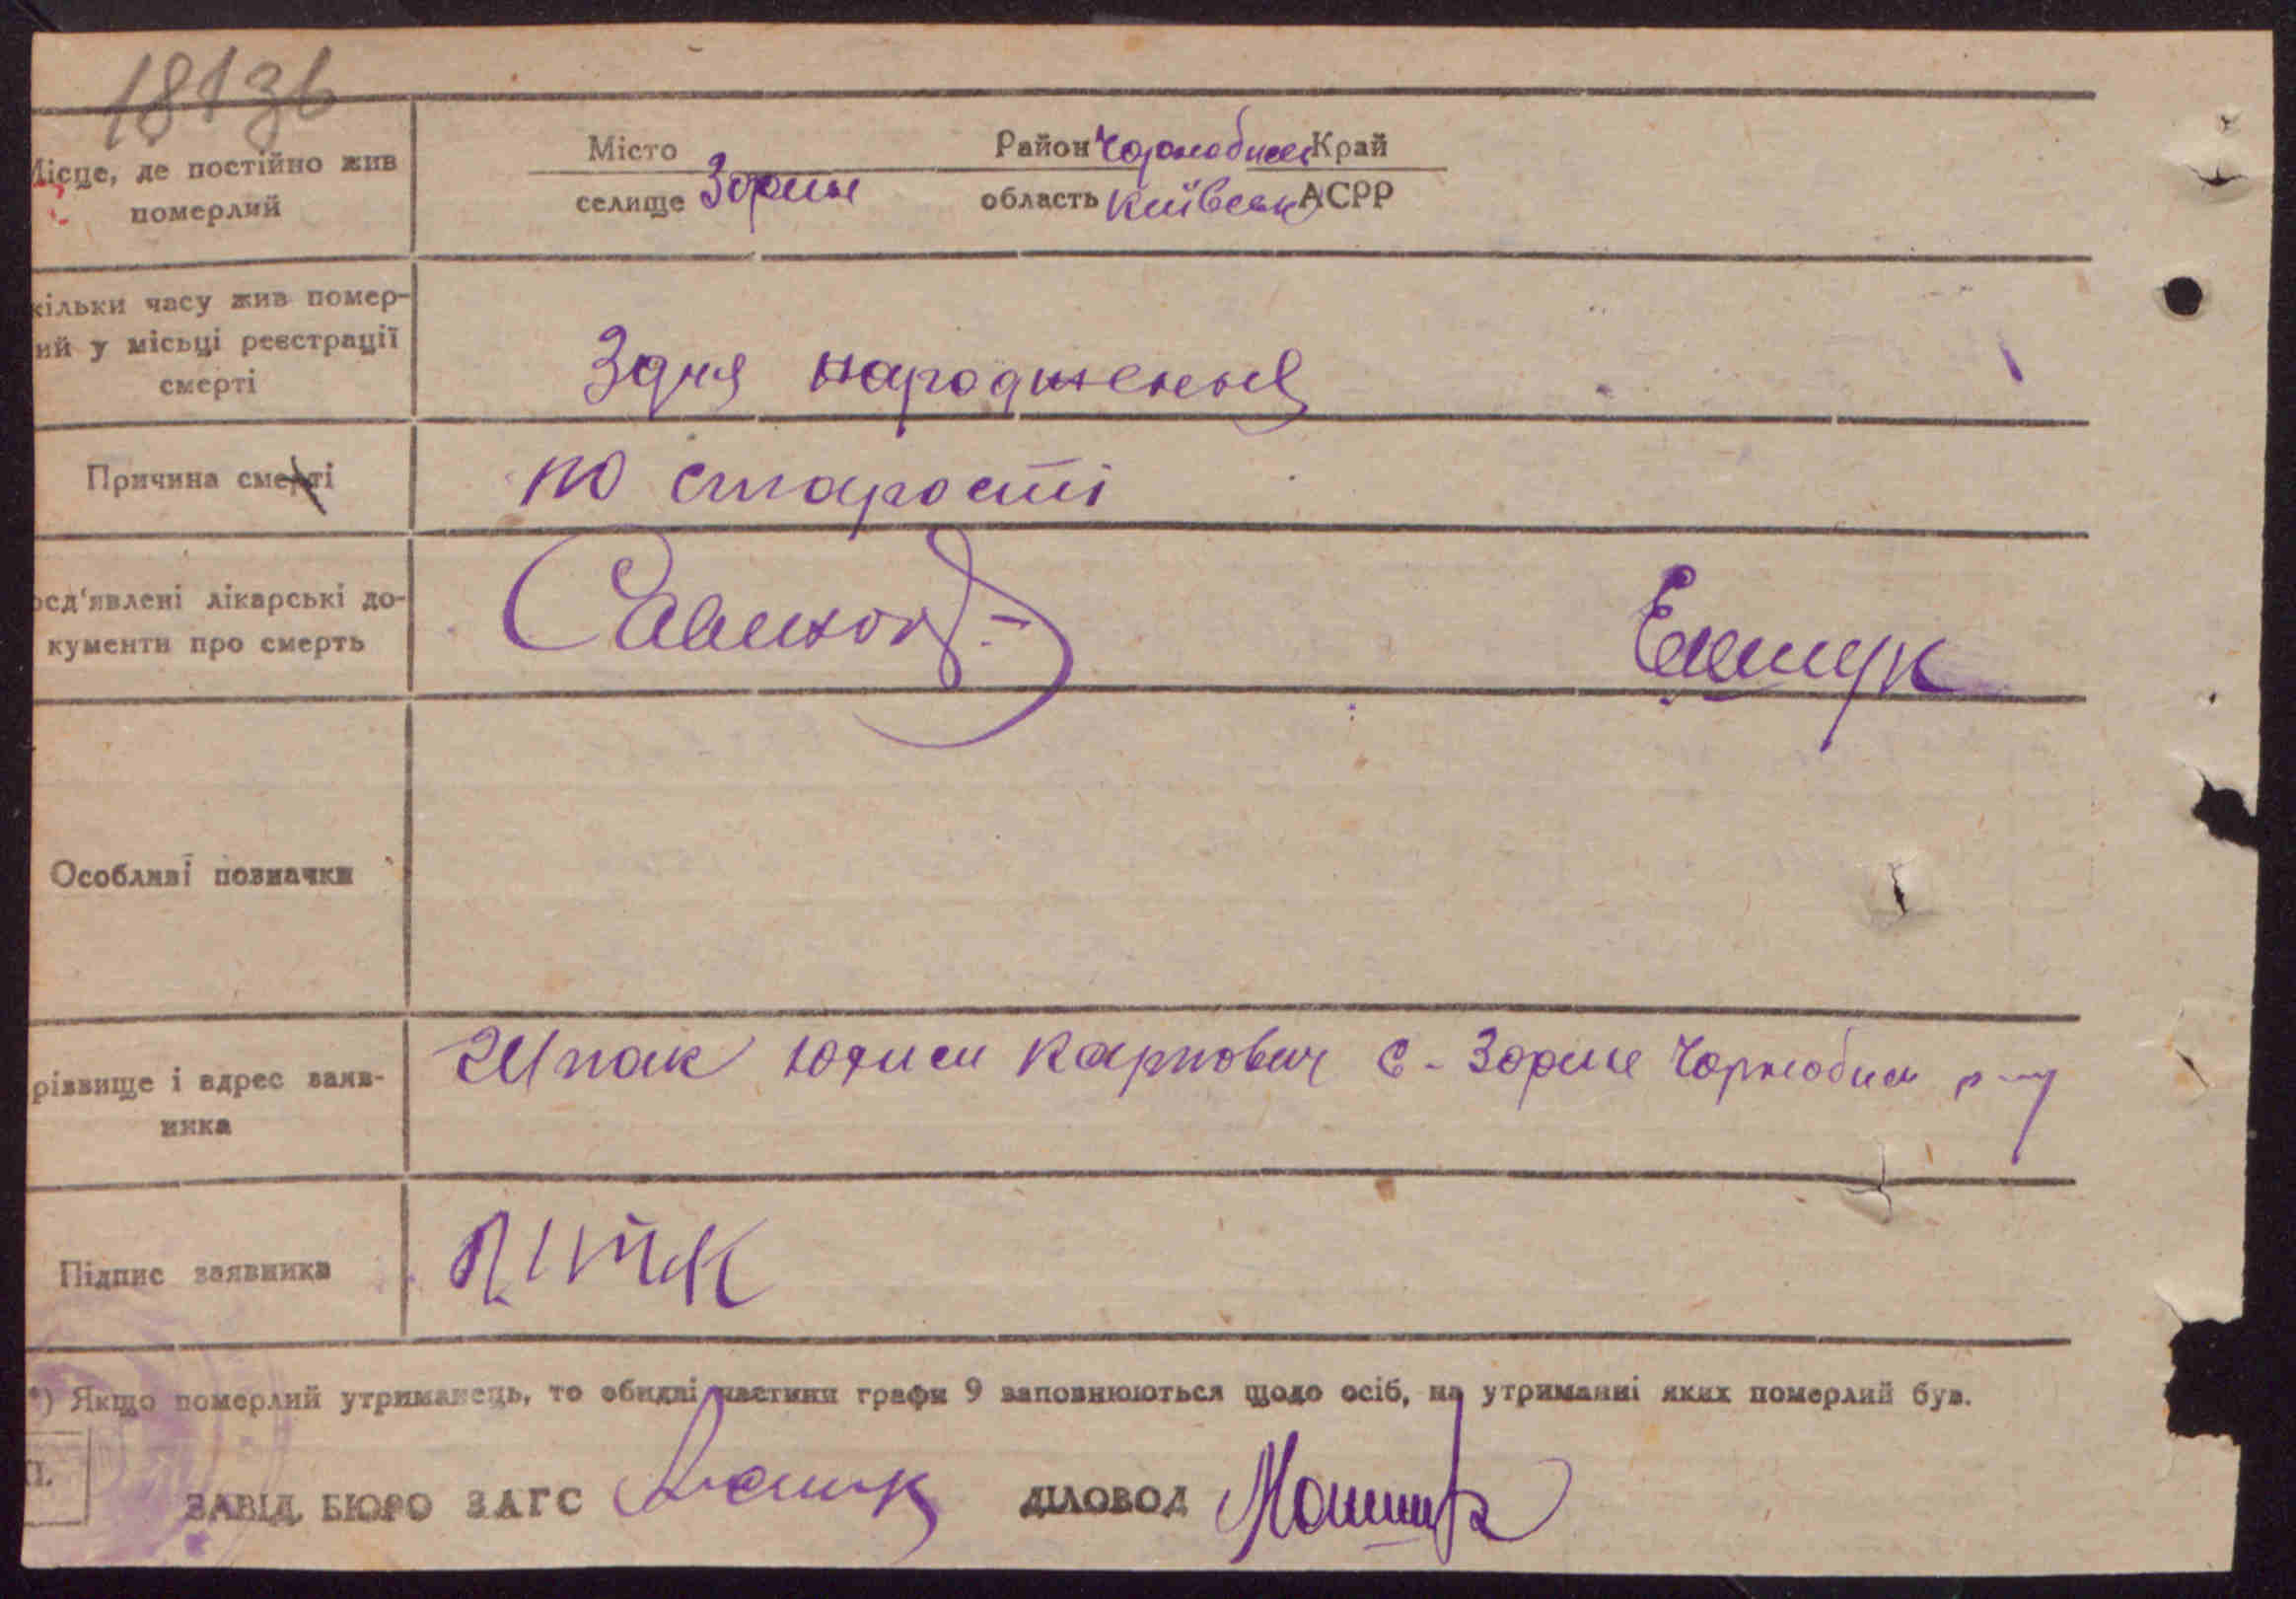 Місце, де постійно жив
померлий
Місто
селище Зорин
Район Чорнобил Край
область Київськ АСРР
кільки часу жив помер-
ий у місьці реєстрації
смерті
З дня народження
Причина смерті
по старості
сд'явлені лікарські до-
кументи про смерть
Особливі позначки
різвище і адрес заяв-
ника
Шпак Юхим Карпович с-Зорине Чорнобил р-у
Підпис заявника
*) Якщо померлий утриманець, то обидві частини графи 9 заповнюються щодо осіб, на утриманні яких померлий був.
П.
ЗАВІД. БЮРО ЗАГС
ДІЛОВОД